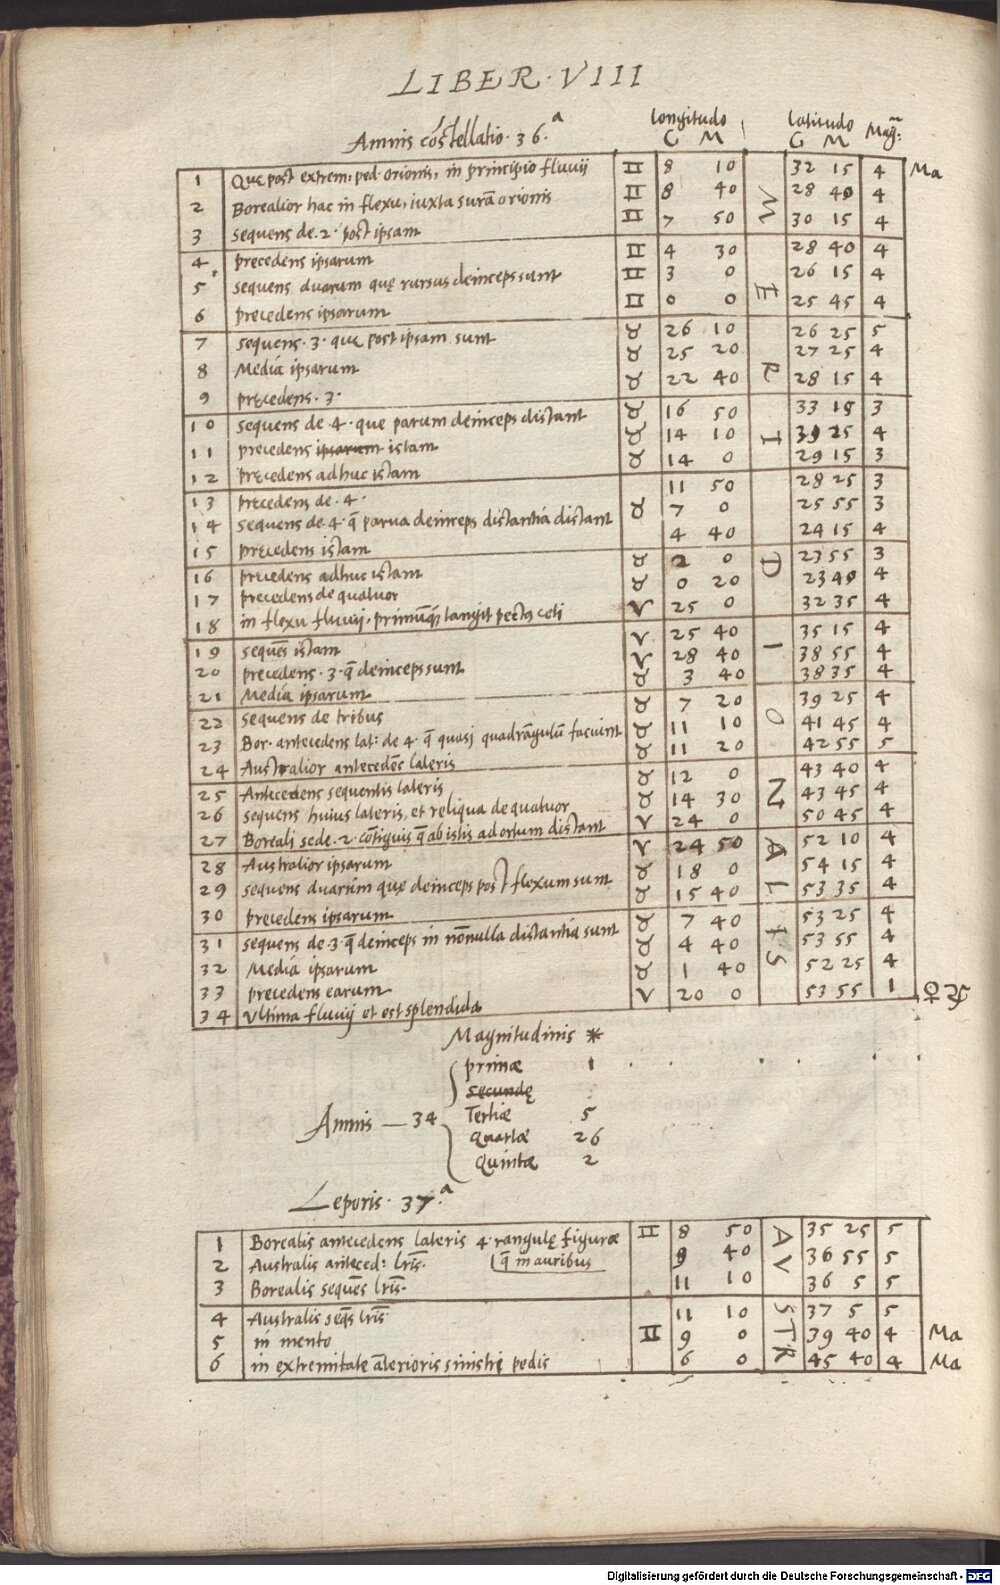 LIBER · VIII
Amnis cōstellatio · 36·ª
Longitudo Latitudo Mag:
G M G M
1 Que post extrem: ped· orionis, in principio fluvij ♊ 8 10 32 15 4 Ma
2 Borealior hac in flexu, iuxta surā orionis ♊ 8 40 28 40 4
3 sequens de· 2· post ipsam ♊ 7 50 30 15 4
4 precedens ipsarum ♊ 4 30 28 40 4
5 sequens duarum quę rursus deinceps sunt ♊ 3 0 26 15 4
6 precedens ipsarum ♊ 0 0 25 45 4
7 sequens· 3· que post ipsam sunt ♉ 26 10 26 25 5
8 Media ipsarum ♉ 25 20 27 25 4
9 pręcedens· 3· ♉ 22 40 28 15 4
10 sequens de 4· que parum deinceps distant ♉ 16 50 33 15 3
11 precedens ipsarum istam ♉ 14 10 39 25 4
12 pręcedens adhuc istam ♉ 14 0 29 15 3
13 precedens de· 4· 11 50 28 25 3
14 sequens de 4· q̄ parva deinceps distantia distant ♉ 7 0 25 55 3
15 pręcedens istam 4 40 24 15 4
16 precedens adhuc istam ♉ 2 0 23 55 3
17 precedens de quatuor ♉ 0 20 23 40 4
18 in flexu fluvij, primūq; tangit pectꝰ ceti ♈ 25 0 32 35 4
19 sequēs istam ♈ 25 40 35 15 4
20 precedens· 3· q̄ deinceps sunt ♈ 28 40 38 55 4
21 Media ipsarum ♉ 3 40 38 35 4
22 sequens de tribus ♉ 7 20 39 25 4
23 Bor· antecedens lat: de 4· q̄ quasi quadrāgulū faciunt ♉ 11 10 41 45 4
24 Australior antecedēs lateris ♉ 11 20 42 55 5
25 Antecedens sequentis lateris ♉ 12 0 43 40 4
26 sequens huius lateris, et reliqua de quatuor ♉ 14 30 43 45 4
27 Boreali sede· 2· cōtiguis q̄ ab istis ad ortum distant ♈ 24 0 50 45 4
28 Australior ipsarum ♈ 24 50 52 10 4
29 sequens duarum quę deinceps post flexum sunt ♉ 18 0 54 15 4
30 precedens ipsarum ♉ 15 40 53 35 4
31 sequens de· 3· q̄ deinceps in nōnulla distantia sunt ♉ 7 40 53 25 4
32 Media ipsarum ♉ 4 40 53 55 4
33 precedens earum ♉ 1 40 52 25 4
34 Vltima fluvij et est splendida ♈ 20 0 53 55 1 ♀
MERIDIONALIS
Magnitudinis *
primæ 1
secundę
Amnis — 34 Tertiæ 5
Quartæ 26
Quintæ 2
Leporis · 37·ª
1 Borealis antecedens lateris 4· rangulę figuræ ♊ 8 50 35 25 5
2 Australis anteced: lrīs· q̄ in auribus 9 40 36 55 5
3 Borealis sequēs lrīs· 11 10 36 5 5
4 Australis seq̄s lrīs· 11 10 37 5 5
5 in mento ♊ 9 0 39 40 4 Ma
6 in extremitate āterioris sinistrę pedis 6 0 45 40 4 Ma
AVSTR
Digitalisierung gefördert durch die Deutsche Forschungsgemeinschaft - DFG